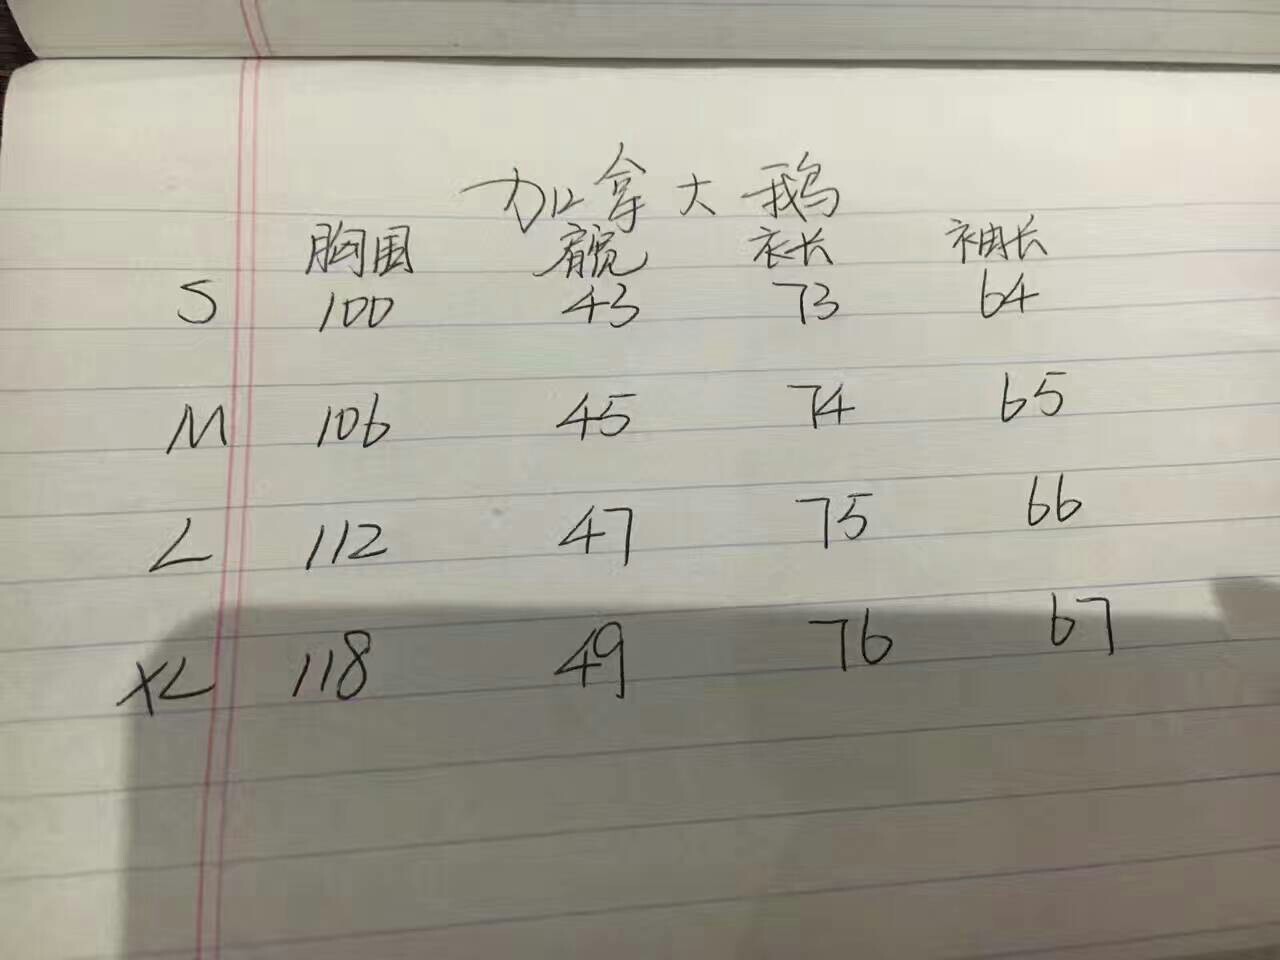 加拿大鹅
胸围 肩宽 衣长 袖长
S 100 43 73 64
M 106 45 74 65
L 112 47 75 66
XL 118 49 76 67